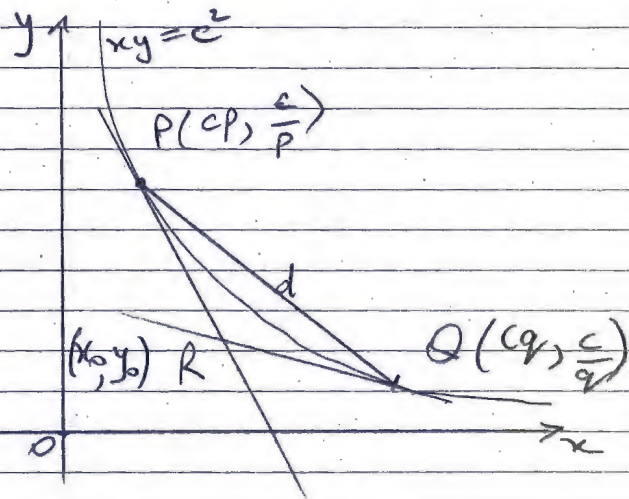 y
xy = c²
P(cp, c/p)
d
(x₀, y₀) R
Q(cq, c/q)
O
x